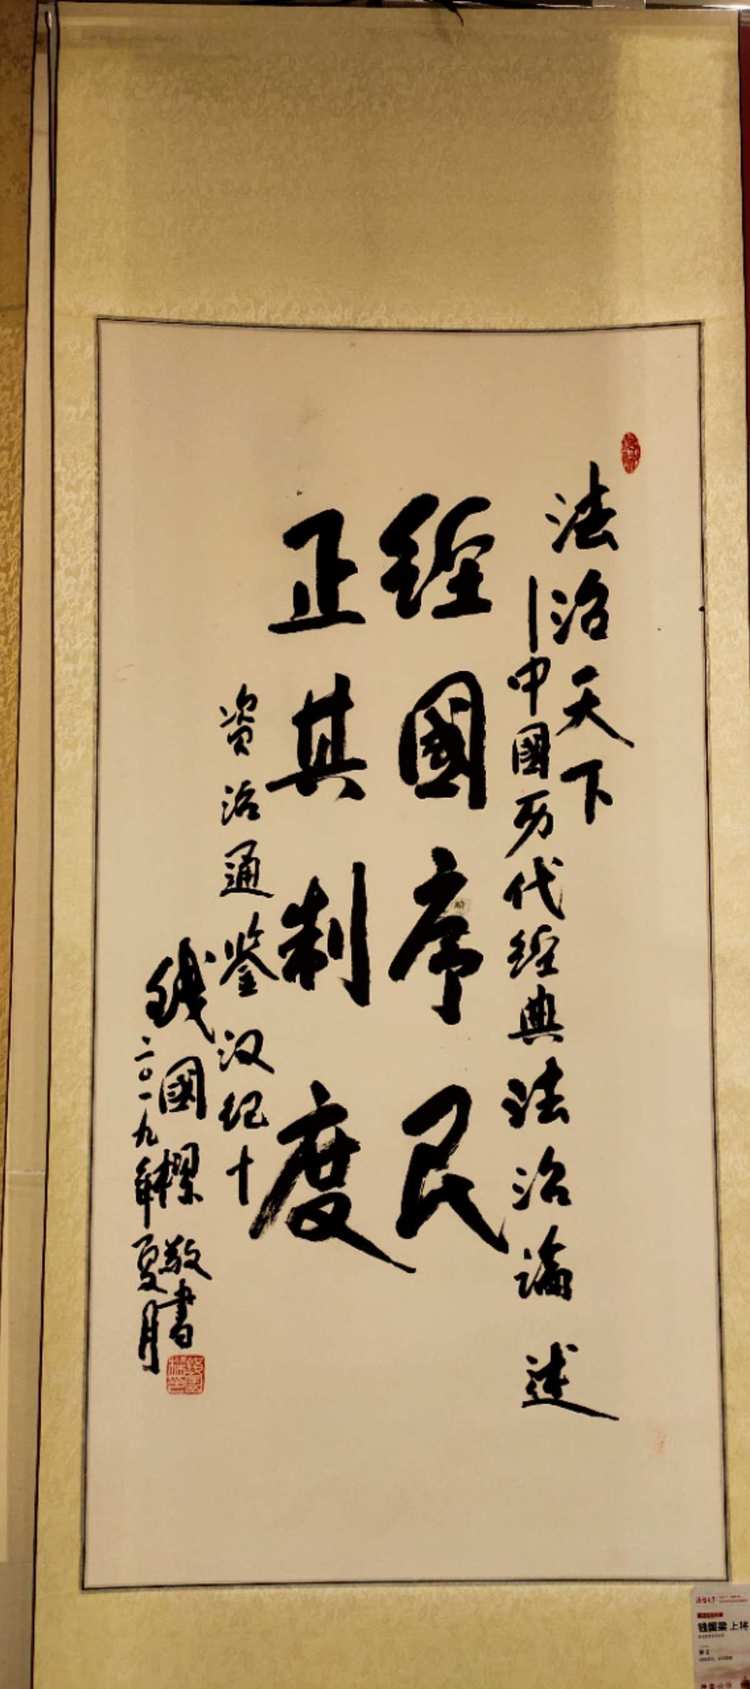 法治天下
—中國历代经典法治論述
经國序民
正其制度
资治通鉴汉纪十
钱國樑敬書
二〇一九年夏月
钱国梁 上将